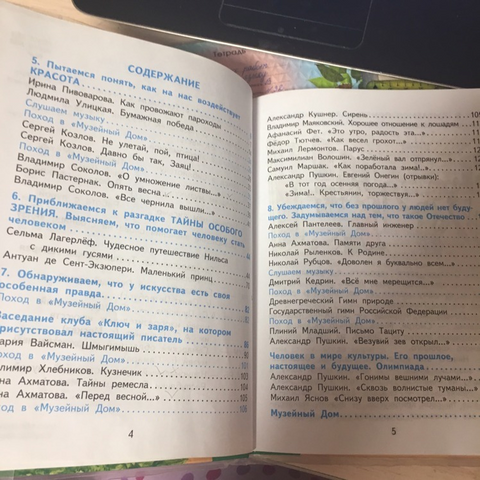 Тетрадь
СОДЕРЖАНИЕ
5. Пытаемся понять, как на нас воздействует
КРАСОТА
Ирина Пивоварова. Как провожают пароходы
Людмила Улицкая. Бумажная победа
Слушаем музыку
Поход в «Музейный Дом»
Сергей Козлов. Не улетай, пой, птица!
Сергей Козлов. Давно бы так, Заяц!
Поход в «Музейный Дом»
Владимир Соколов. «О умножение листвы...»
Борис Пастернак. Опять весна
Владимир Соколов. «Все чернила вышли...»
6. Приближаемся к разгадке ТАЙНЫ ОСОБОГО
ЗРЕНИЯ. Выясняем, что помогает человеку стать
человеком
Сельма Лагерлёф. Чудесное путешествие Нильса
с дикими гусями
Антуан де Сент-Экзюпери. Маленький принц
7. Обнаруживаем, что у искусства есть своя
особенная правда
Поход в «Музейный Дом»
Заседание клуба «Ключ и заря», на котором
присутствовал настоящий писатель
Мария Вайсман. Шмыгимышь
Поход в «Музейный Дом»
Велимир Хлебников. Кузнечик
Анна Ахматова. Тайны ремесла
Анна Ахматова. «Перед весной...»
Поход в «Музейный Дом»
4
Александр Кушнер. Сирень
Владимир Маяковский. Хорошее отношение к лошадям
Афанасий Фет. «Это утро, радость эта...»
Фёдор Тютчев. «Как весел грохот...»
Михаил Лермонтов. Парус
Максимилиан Волошин. «Зелёный вал отпрянул...»
Самуил Маршак. «Как поработала зима!..»
Александр Пушкин. Евгений Онегин (отрывки):
«В тот год осенняя погода...»
«Зима!.. Крестьянин, торжествуя...»
8. Убеждаемся, что без прошлого у людей нет буду-
щего. Задумываемся над тем, что такое Отечество
Алексей Пантелеев. Главный инженер
Поход в «Музейный Дом»
Анна Ахматова. Памяти друга
Николай Рыленков. К Родине
Николай Рубцов. «Доволен я буквально всем...»
Слушаем музыку
Дмитрий Кедрин. «Всё мне мерещится...»
Поход в «Музейный Дом»
Древнегреческий Гимн природе
Государственный гимн Российской Федерации
Поход в «Музейный Дом»
Плиний Младший. Письмо Тациту
Александр Пушкин. «Везувий зев открыл...»
Человек в мире культуры. Его прошлое,
настоящее и будущее. Олимпиада
Александр Пушкин. «Гонимы вешними лучами...»
Александр Пушкин. «Сквозь волнистые туманы...»
Михаил Яснов «Снизу вверх посмотрел...»
Музейный Дом
5